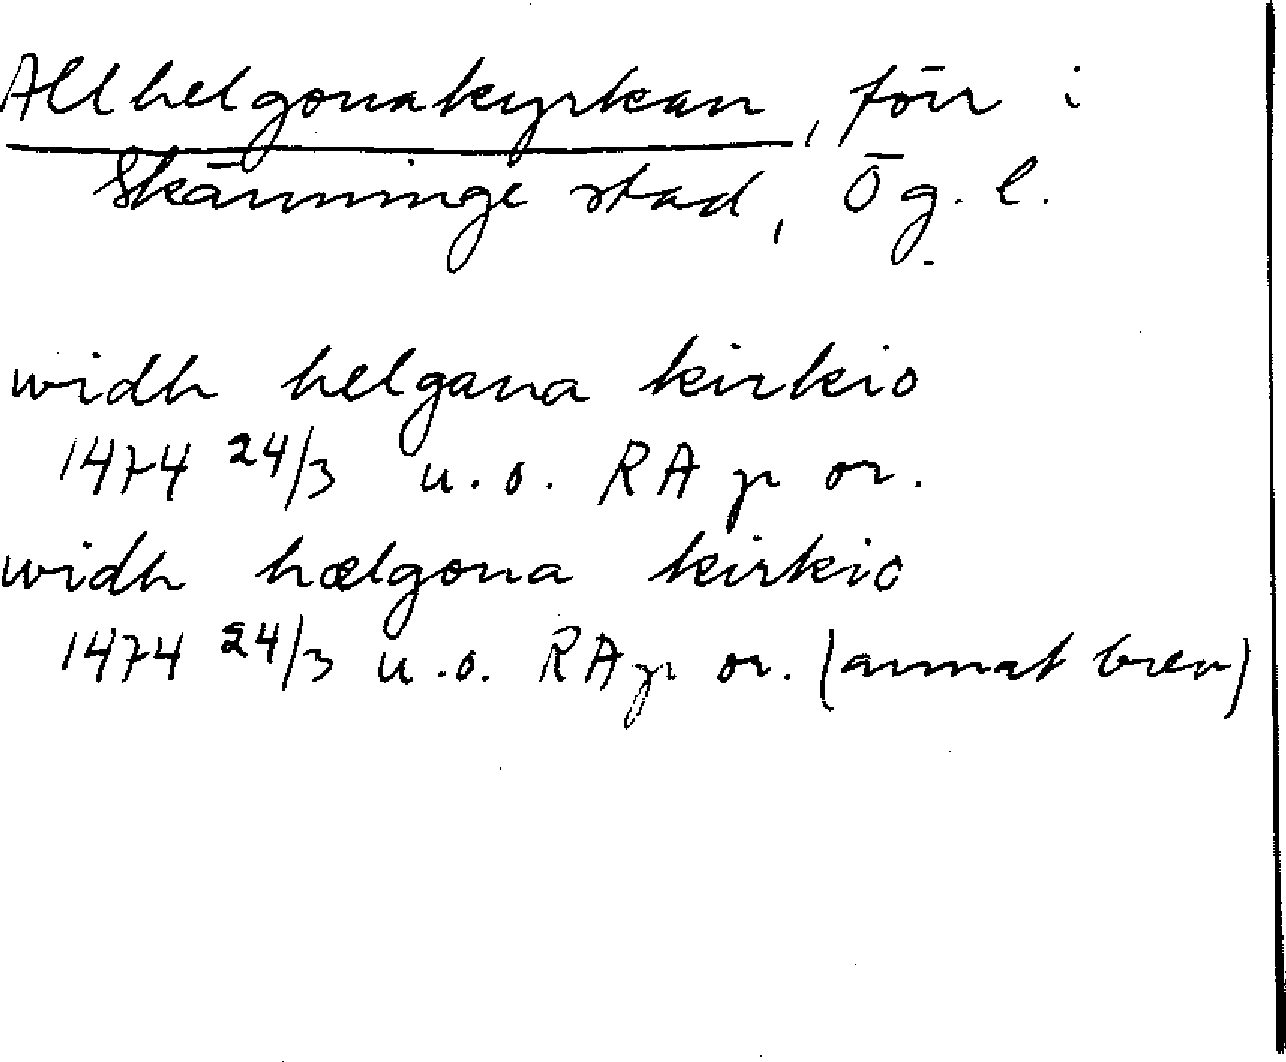 Allhelgonakyrkan, förr i
Skänninge stad, Ög. l.
widh helgana kirkio
1474 24/3 u.o. RA p or.
widh hælgona kirkio
1474 24/3 u.o. RAp or. (annat brev)